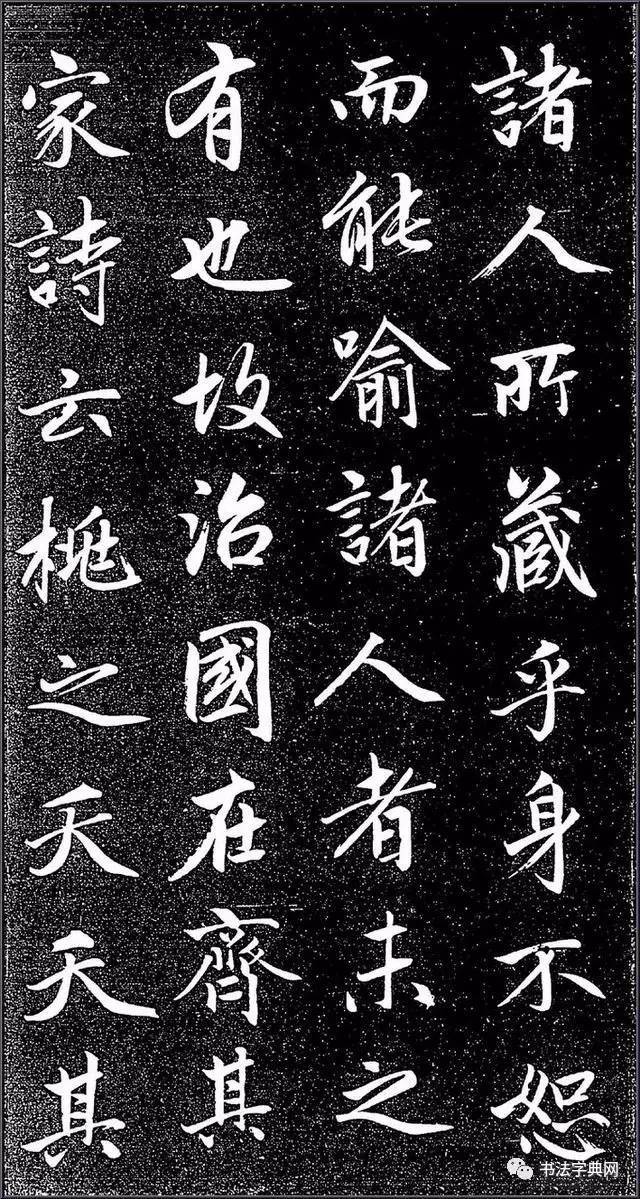 諸人所藏乎身不恕
而能喻諸人者未之
有也故治國在齊其
家詩云桃之夭夭其
书法字典网